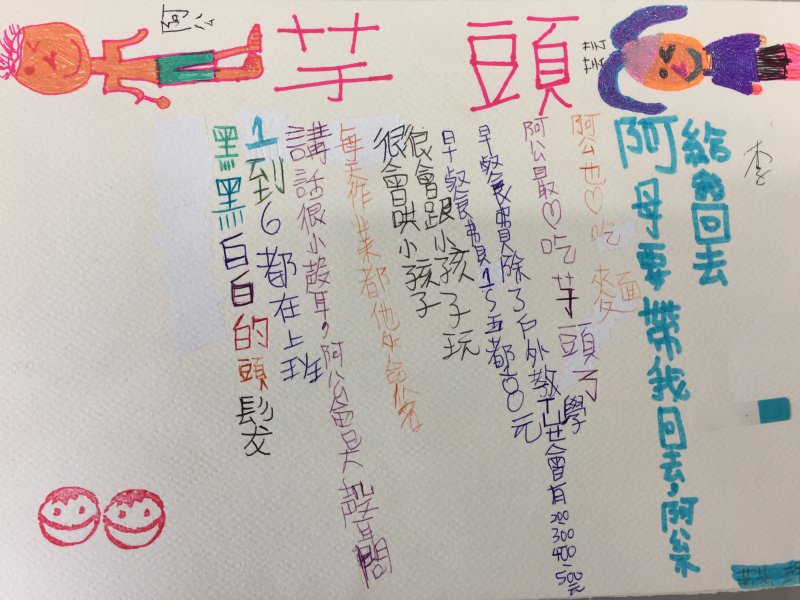 阿公
芋頭
芸芸
黑黑白白的頭髮
1到6都在上班
講話很小聲耳，阿公會是大聲問
每天作業都他來簽名
很會哄小孩子
很會跟小孩子玩
早餐費1~五都80元
早餐費除了戶外教學
也會有200 300 400~500元
阿公最♡吃芋頭了
阿公也♡吃麵
阿母要帶我回去，阿公不
給我回去
李